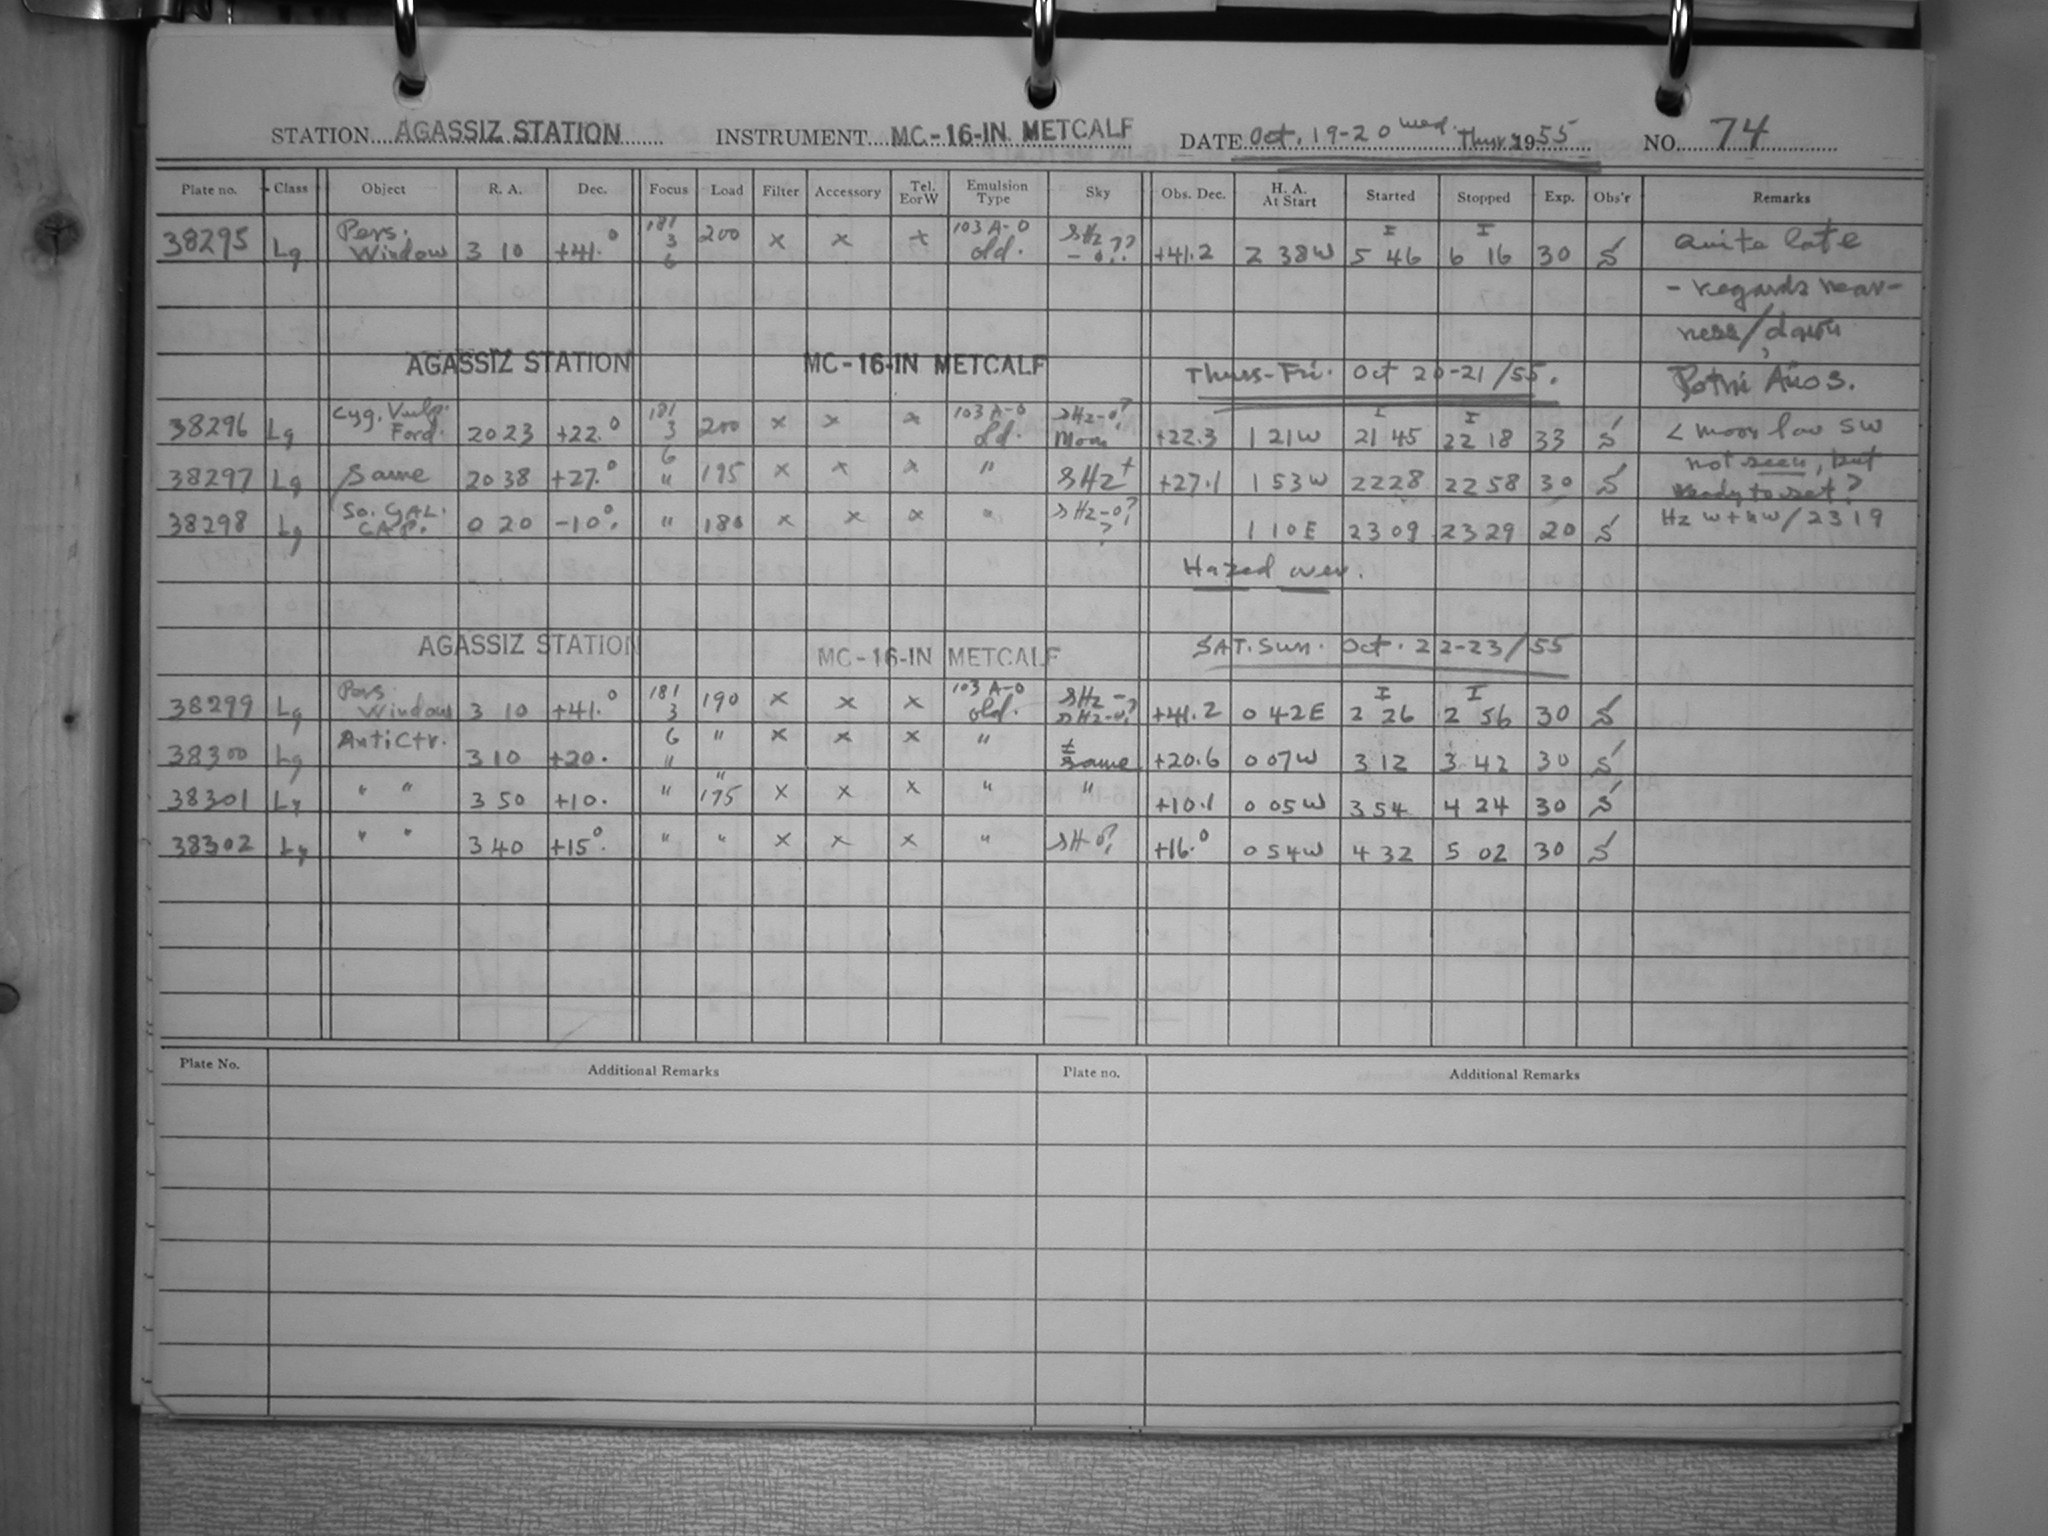 STATION AGASSIZ STATION INSTRUMENT MC-16-IN. METCALF DATE Oct. 19-20 Wed. Thurs 1955 NO. 74
Plate no. Class Object R. A. Dec. Focus Load Filter Accessory Tel. E or W Emulsion Type Sky Obs. Dec. H. A. At Start Started Stopped Exp. Obs'r Remarks
38295 Lg Pers. Window 3 10 +41.° 181 3 6 200 x x x 103 A-O old. +41.2 2 38W I 5 46 I 6 16 30 S Quite late
- regards near-
ness/dawn
AGASSIZ STATION MC-16-IN METCALF Thurs-Fri. Oct 20-21/55.
38296 Lg Cyg. Vulp. Ford. 20 23 +22.° 181 3 6 200 x x x 103 A-O old. SHz-0? Moon +22.3 1 21W I 21 45 I 22 18 33 S < moon low SW
38297 Lg Same 20 38 +27.° " 195 x x x " SHz+ +27.1 1 53W 22 28 22 58 30 S not seen, but ready to set?
38298 Lg So. GAL. CAP. 0 20 -10°. " 180 x x x " SHz-0? ? 1 10E 23 09 23 29 20 S Hz W+NW/2319
Hazed over.
AGASSIZ STATION MC-16-IN METCALF SAT. Sun. Oct. 22-23/55
38299 Lg Pers. Window 3 10 +41.° 181 3 6 190 x x x 103 A-O old. SHz-? SHz-0? +41.2 0 42E I 2 26 I 2 56 30 S
38300 Lg AntiCtr. 3 10 +20. " " x x x " ± Same +20.6 0 07W 3 12 3 42 30 S
38301 Lg " " 3 50 +10. " 175 x x x " " +10.1 0 05W 3 54 4 24 30 S
38302 Lg " " 3 40 +15°. " " x x x " SH-0? +16.° 0 54W 4 32 5 02 30 S
Plate No. Additional Remarks Plate no. Additional Remarks